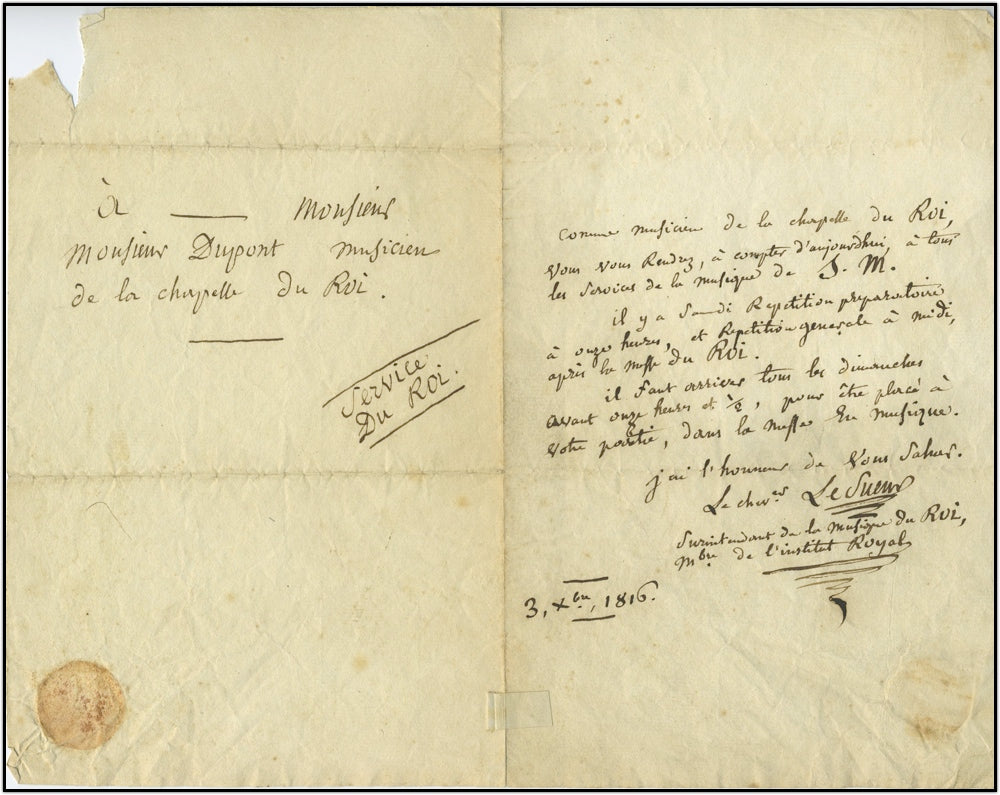 à — Monsieur
Monsieur Dupont musicien
de la chapelle du Roi.
Service
Du Roi.
comme musicien de la chapelle du Roi,
vous vous Rendrez, à compter d'aujourdhui, à tous
les Services de la musique de S. M.
il y a Samdi Repetition preparatoire
à onze heures, et Repetition generale à midi,
après la messe du Roi.
il faut arriver tous les dimanches
avant onze heures et ½, pour être placé à
votre partie, dans la messe En musique.
j'ai l'honneur de Vous Saluer.
Le chver Le Sueur
Surintendant de la Musique du Roi,
mbre de l'institut Royal
3, Xbre, 1816.